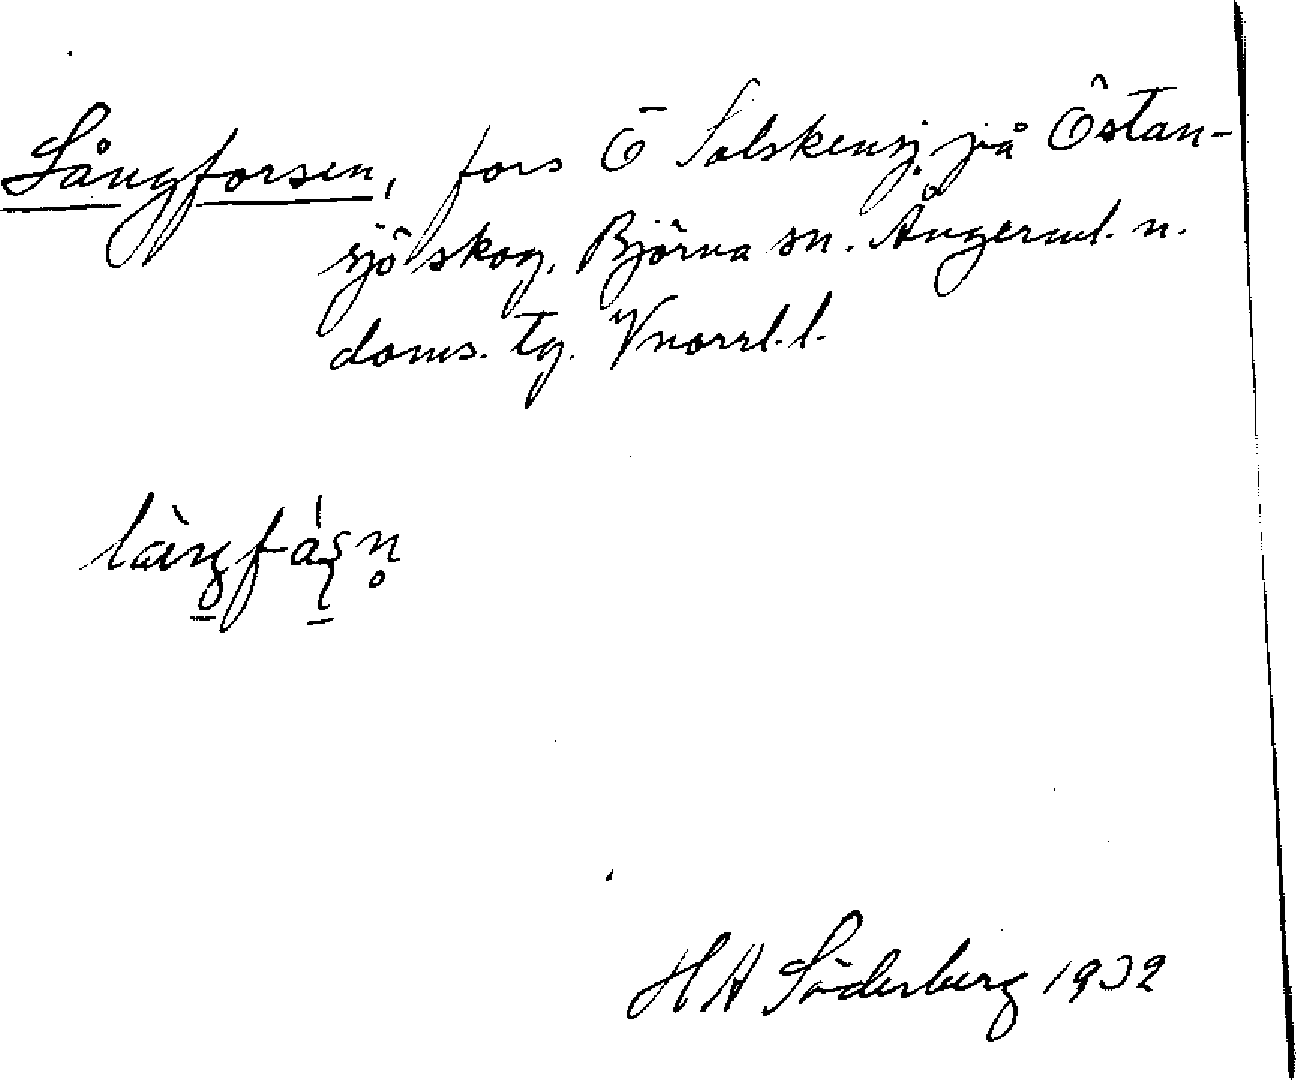 Långforsen, fors Ö Solskensj. på Östan-
sjö skog, Björna sn. Ångerml. n.
doms. tg. Vnorrl. l.
HA Söderberg 1932